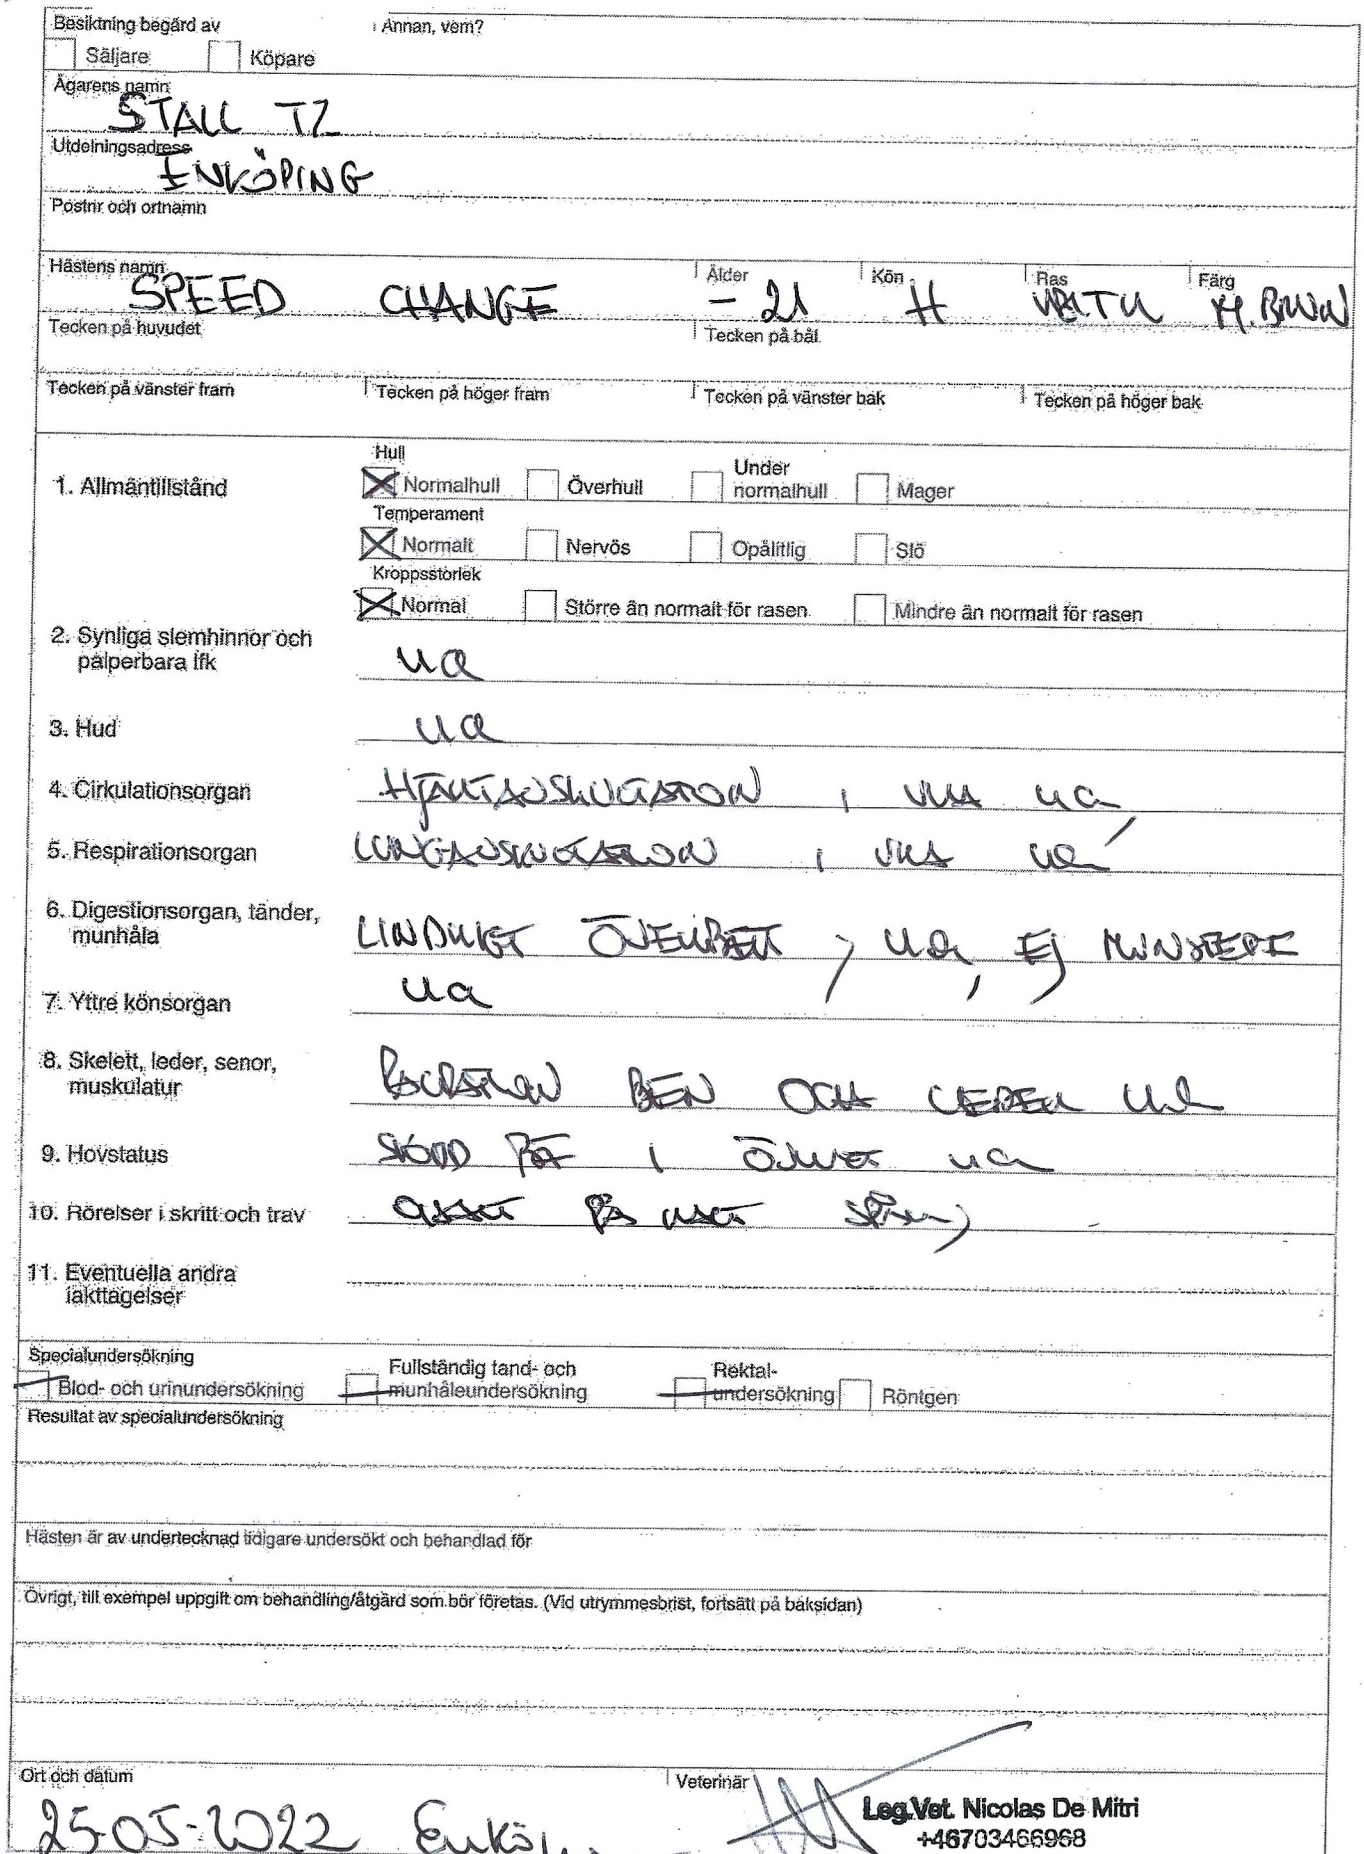 Besiktning begärd av Annan, vem?
Säljare Köpare
Ägarens namn
STALL TZ
Utdelningsadress
ENKÖPING
Postnr och ortnamn
Hästens namn Ålder Kön Ras Färg
SPEED CHANGE - 21 H M. BRUN
Tecken på huvudet Tecken på bål
Tecken på vänster fram Tecken på höger fram Tecken på vänster bak Tecken på höger bak
Hull
1. Allmäntillstånd Normalhull Överhull Under normalhull Mager
Temperament
Normalt Nervös Opålitlig Slö
Kroppsstorlek
Normal Större än normalt för rasen Mindre än normalt för rasen
2. Synliga slemhinnor och
palperbara lfk ua
3. Hud ua
4. Cirkulationsorgan HJÄRTAUSKULTATION I VILA ua
5. Respirationsorgan LUNGAUSKULTATION I VILA ua
6. Digestionsorgan, tänder,
munhåla LINDRIGT ÖVERBETT, ua, EJ
7. Yttre könsorgan ua
8. Skelett, leder, senor,
muskulatur PALPATION BEN OCH LEDER ua
9. Hovstatus SKODD I ÖVRIGT ua
10. Rörelser i skritt och trav PÅ
11. Eventuella andra
iakttagelser
Specialundersökning
Blod- och urinundersökning Fullständig tand- och munhåleundersökning Rektal-undersökning Röntgen
Resultat av specialundersökning
Hästen är av undertecknad tidigare undersökt och behandlad för
Övrigt, till exempel uppgift om behandling/åtgärd som bör företas. (Vid utrymmesbrist, fortsätt på baksidan)
Ort och datum Veterinär
25-05-2022 Leg.Vet. Nicolas De Mitri
+46703466968